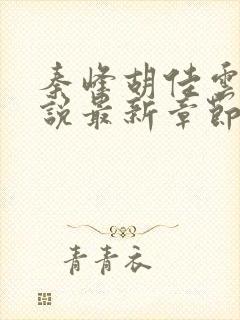 秦峰胡佳雲
說最新章節
青青衣